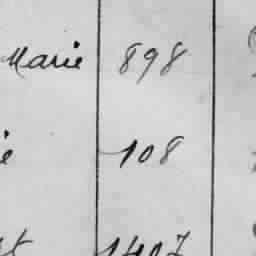 Marie 898
108
1407